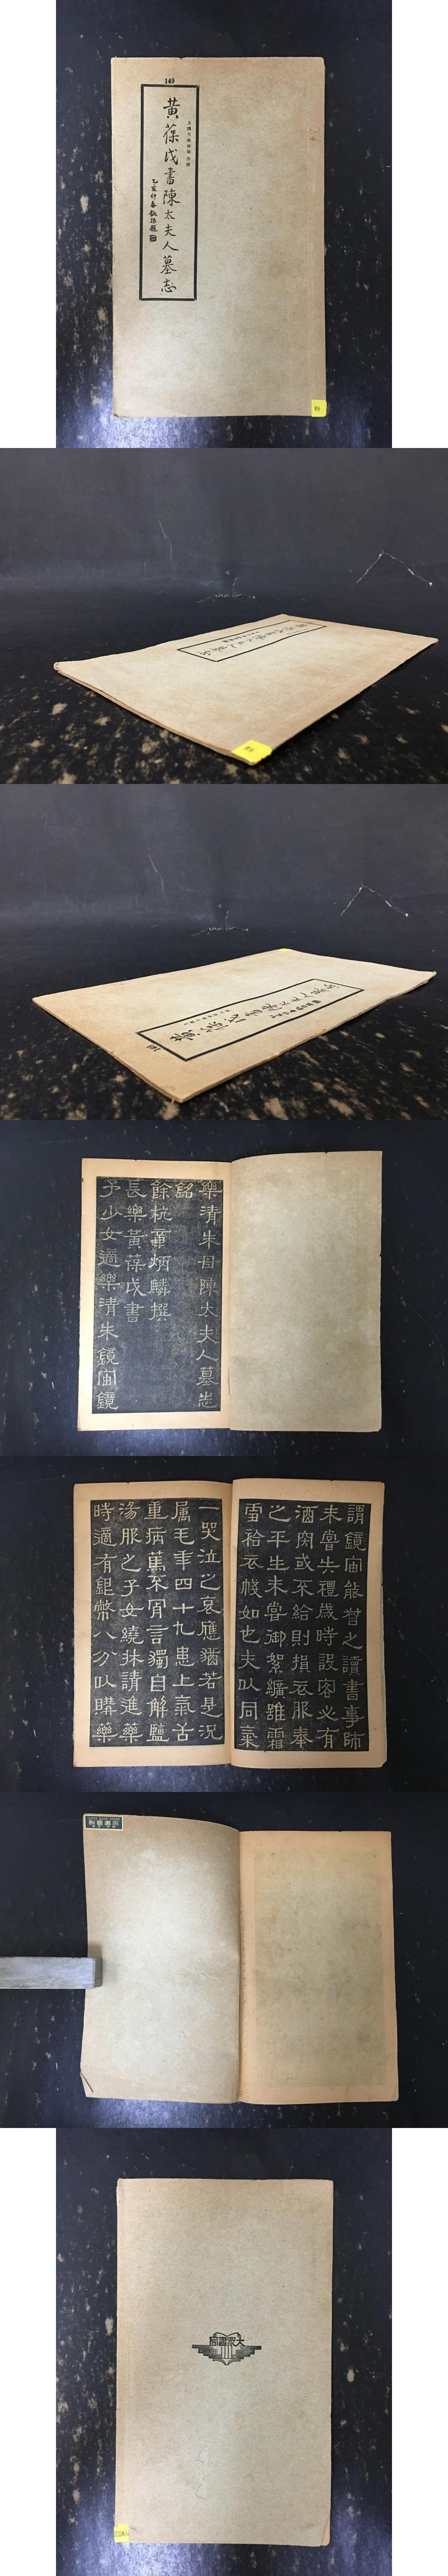 149
黃葆戉書陳太夫人墓志
樂清朱母陳太夫人墓志
銘
餘杭章炳麟撰
長樂黃葆戉書
予少女適樂清朱鏡宙鏡
謂鏡宙能督之讀書事師
未嘗失禮歲時設客必有
酒肉或不給則損衣服奉
之平生未嘗御絮纊雖霜
雪袷衣幭如也夫以同氣
一哭泣之哀應猶若是況
属毛年四十九患上氣舌
重病篤不肎言獨自解鹽
湯服之子女繞牀請進藥
時適有銀幣八分以購藥
大眾書局